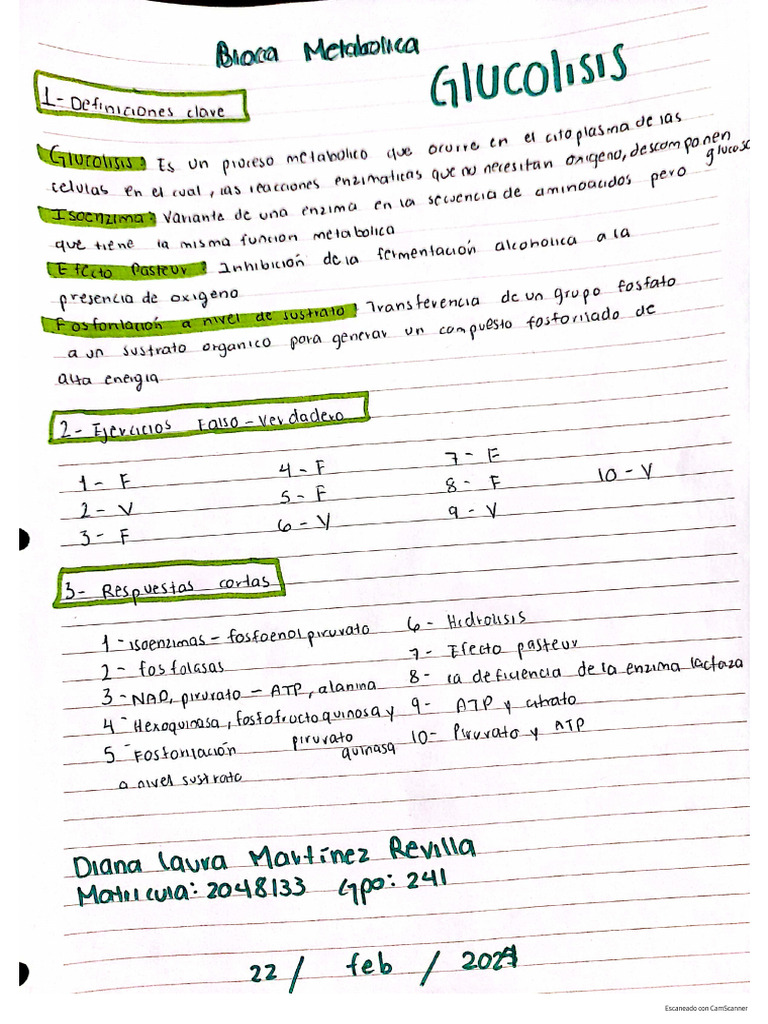 Bioca Metabolica
GLUCOLISIS
1- Definiciones clave
Glucolisis: Es un proceso metabolico que ocurre en el citoplasma de las
celulas en el cual, las reacciones enzimaticas que no necesitan oxigeno, descomponen
glucosa
Isoenzima: Variante de una enzima en la secuencia de aminoacidos pero
que tiene la misma funcion metabolica
Efecto Pasteur: Inhibición de la fermentación alcoholica a la
presencia de oxigeno
Fosforilación a nivel de sustrato: Transferencia de un grupo fosfato
a un sustrato organico para generar un compuesto fosforilado de
alta energia
2- Ejercicios Falso-Verdadero
1- F
2- V
3- F
4- F
5- F
6- V
7- F
8- F
9- V
10- V
3- Respuestas cortas
1- isoenzimas - fosfoenol piruvato
2- fosfolasas
3- NAD, piruvato - ATP, alanina
4- Hexoquinasa, fosfofructoquinosa y
piruvato
quinasa
5- Fosforilación
a nivel sustrato
6- Hidrolisis
7- Efecto pasteur
8- la deficiencia de la enzima lactaza
9- ATP y citrato
10- Piruvato y ATP
Diana Laura Martínez Revilla
Matricula: 2048133 Gpo: 241
22 / feb /
Escaneado con CamScanner